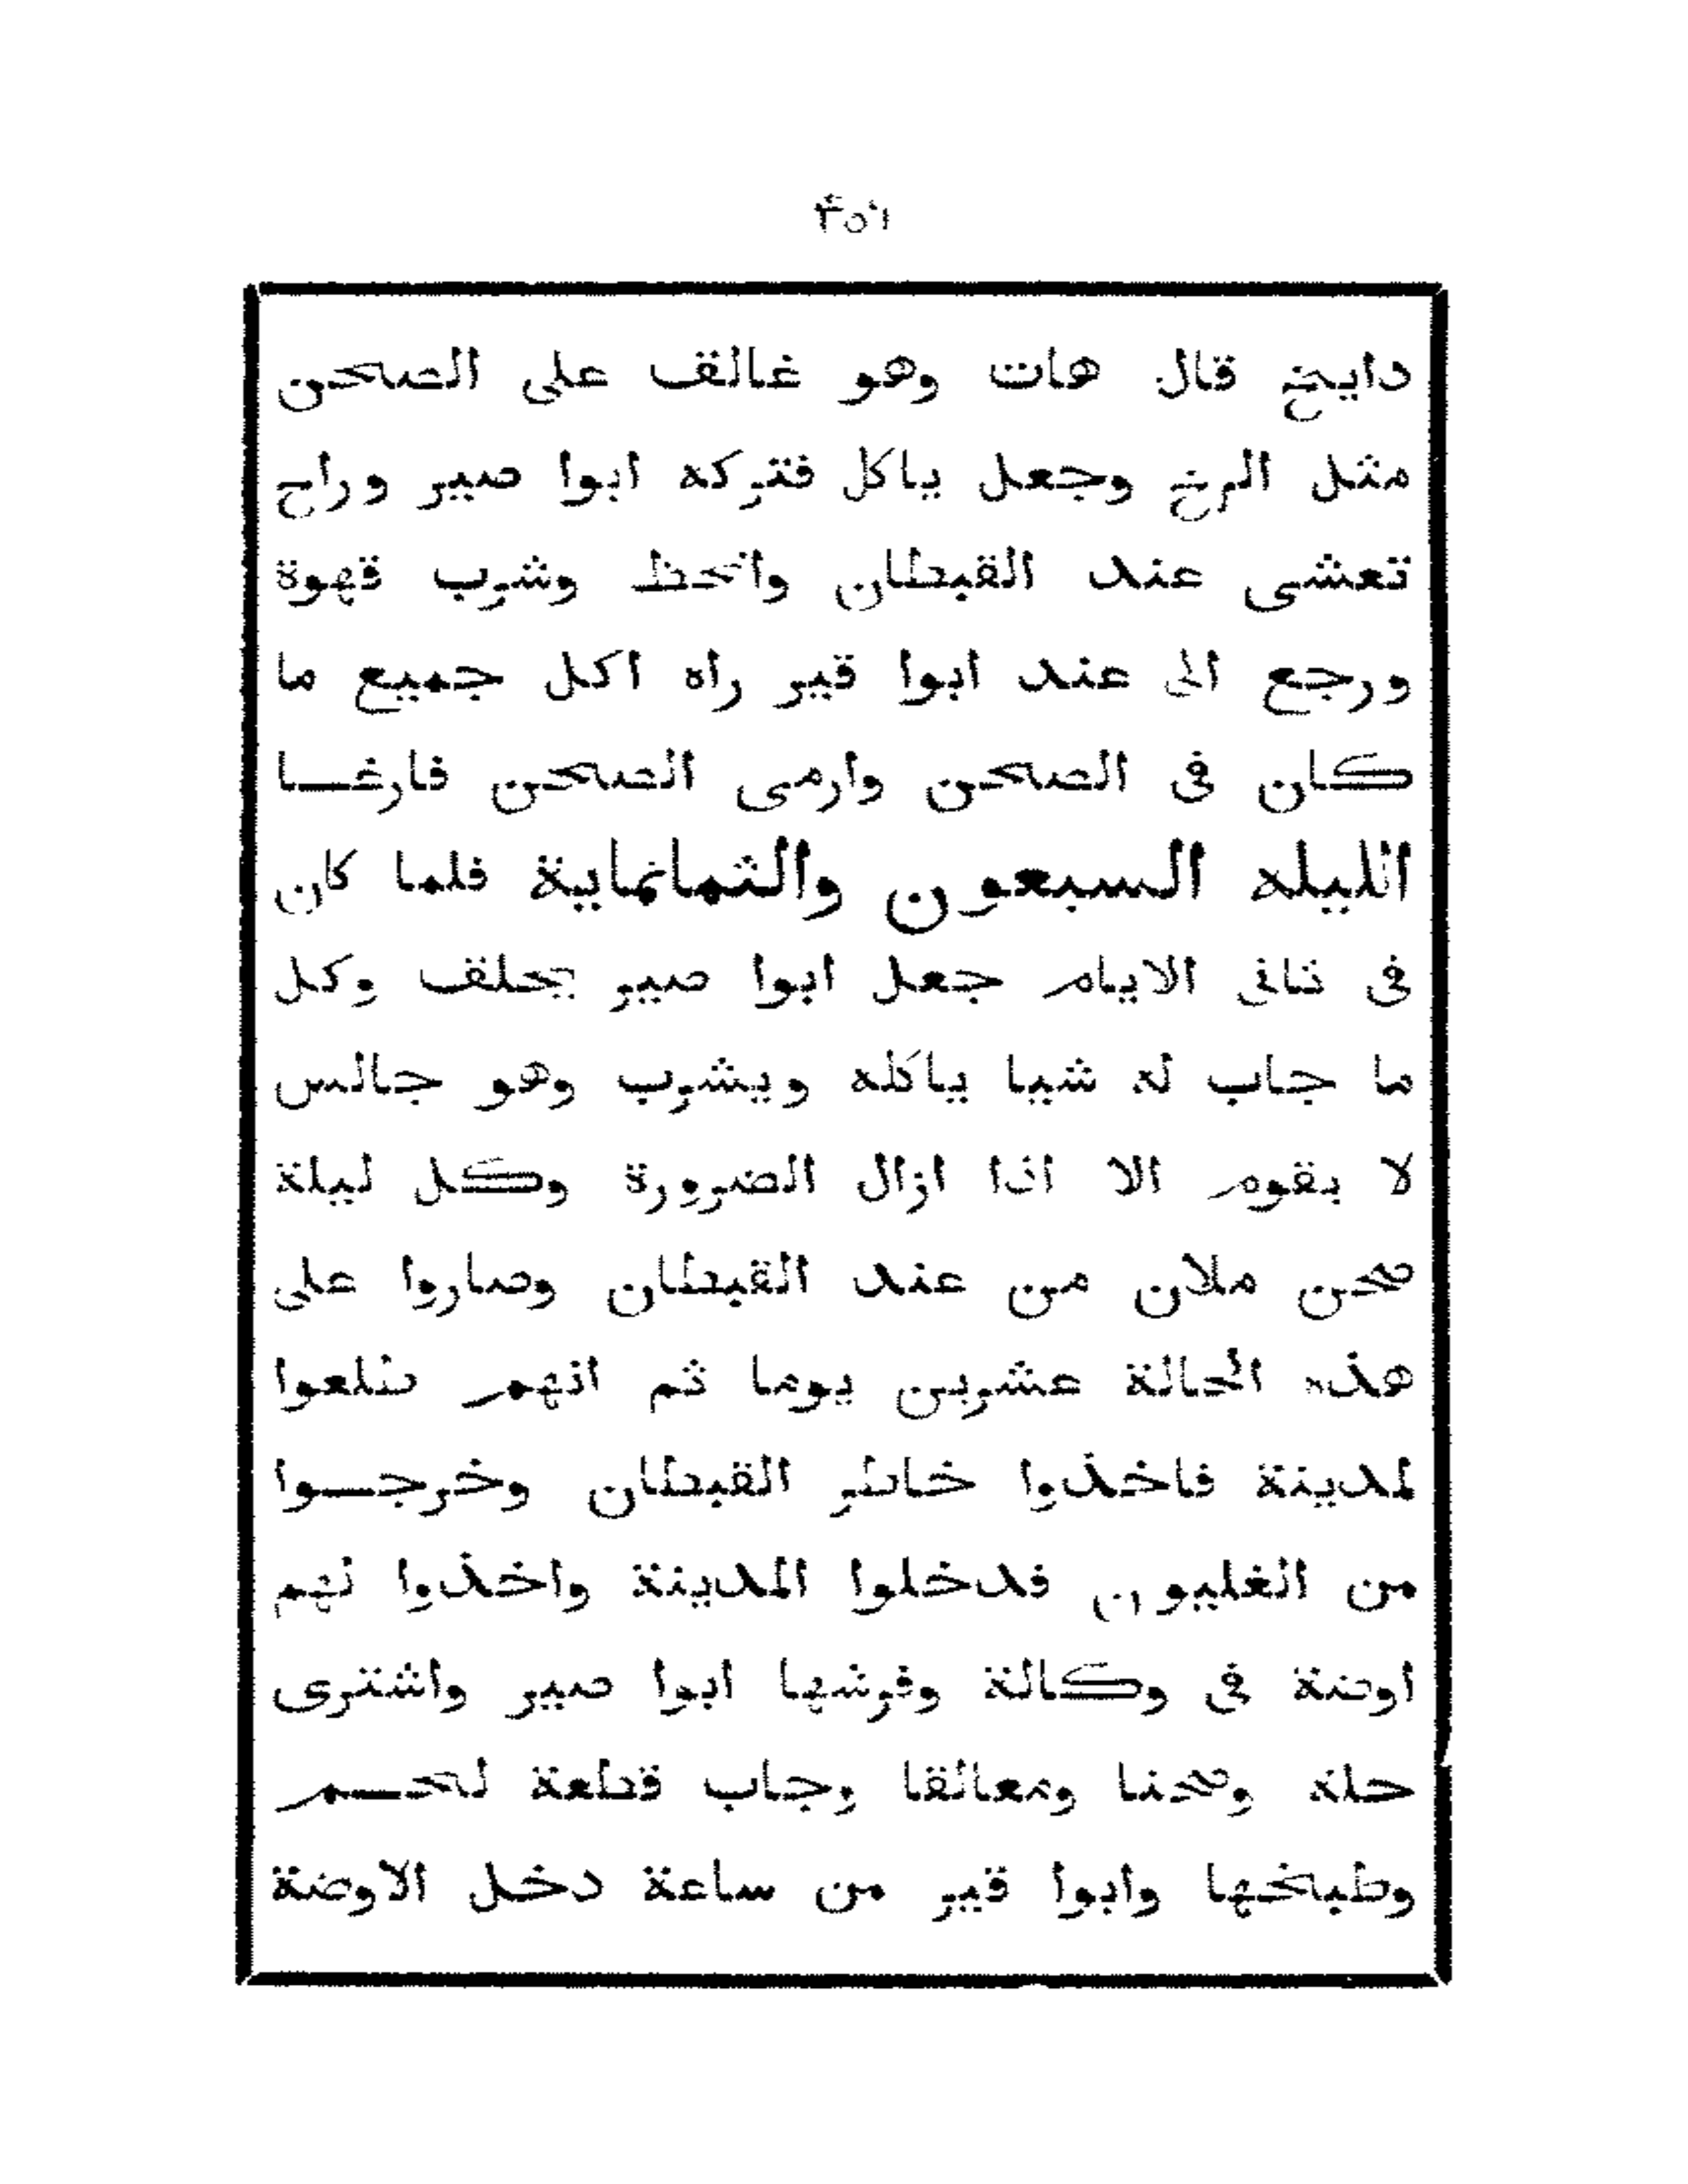 ٤٥٦
دايخ قال هات وهو غالق على الصحن
مثل الرخ وجعل ياكل فتركه ابوا صير وراح
تعشى عند القبطان وانحظ وشرب قهوة
ورجع الى عند ابوا قير راه اكل جميع ما
كان فى الصحن وارمى الصحن فارغا
الليله السبعون والثمانماية فلما كان
فى ثانى الايام جعل ابوا صير يحلق وكل
ما جاب له شيا ياكله ويشرب وهو جالس
لا يقوم الا اذا ازال الضرورة وكل ليلة
صحن ملان من عند القبطان وصاروا على
هذه الحالة عشرين يوما ثم انهم طلعوا
لمدينة فاخذوا خاطر القبطان وخرجوا
من الغليون فدخلوا المدينة واخذوا لهم
اوضة فى وكالة وفرشها ابوا صير واشترى
حلة وصحنا ومعالقا وجاب قطعة لحم
وطبخها وابوا قير من ساعة دخل الاوضة